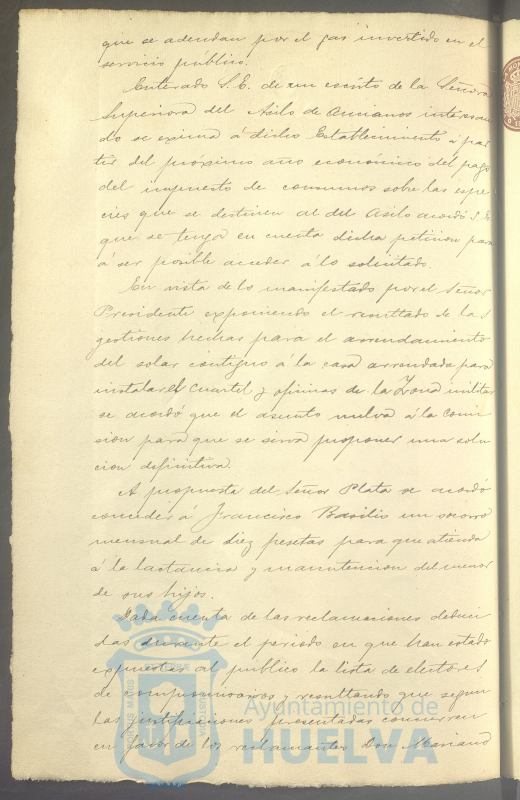 que se adeudan por el gas invertido en el
servicio público.
Enterado S.E. de un escrito de la Señora
Superiora del Asilo de Ancianos interesan
do se exima á dicho Establecimiento á par
tir del próximo año económico del pago
del impuesto de consumos sobre las espe
cies que se destinen al del Asilo acordó S.E.
que se tenga en cuenta dicha peticion para
á ser posible acceder á lo solicitado.
En vista de lo manifestado por el Señor
Presidente exponiendo el resultado de las
gestiones hechas para el arrendamiento
del solar contiguo á la casa arrendada para
instalar el Cuartel y oficinas de la Zona militar
se acordó que el asunto vuelva á la Comi
sion para que se sirva proponer una solu
cion definitiva.
A propuesta del Señor Plata se acordó
conceder á Francisco Basilio un socorro
mensual de diez pesetas para que atienda
á la lactancia y manutencion del menor
de sus hijos.
Dada cuenta de las reclamaciones deduci
das durante el periodo en que han estado
expuestas al público la lista de electores
de compromisarios y resultando que segun
las justificaciones presentadas concurren
en favor de los reclamantes Don Mariano
Ayuntamiento de
HUELVA